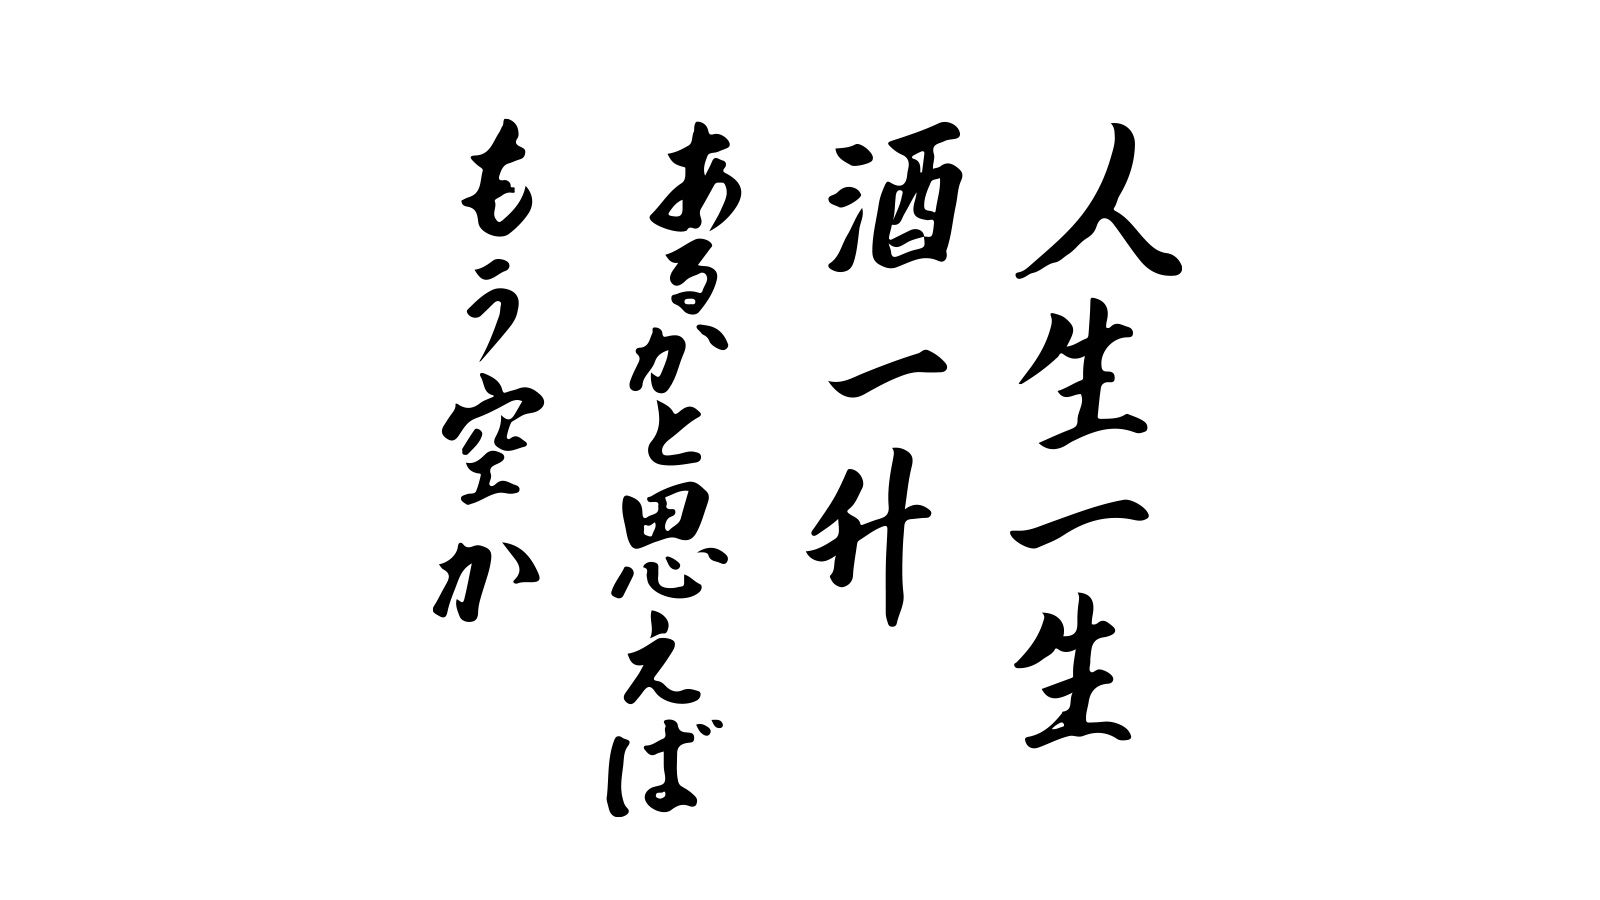 人生一生
酒一升
あるかと思えば
もう空か